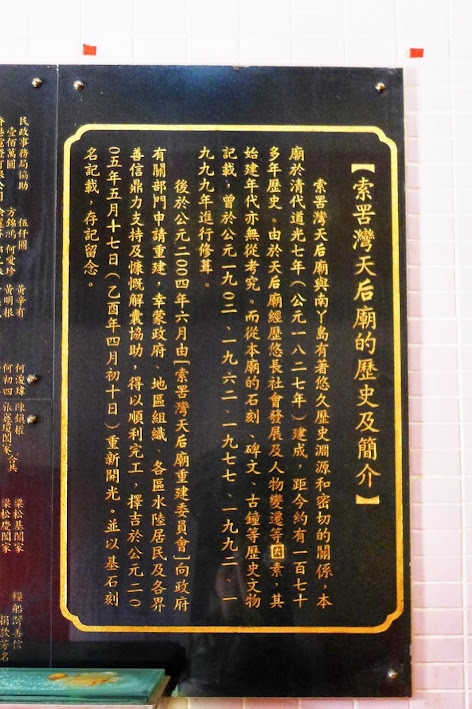 【索罟灣天后廟的歷史及簡介】
索罟灣天后廟與南丫島有著悠久歷史淵源和密切的關係。本
廟於清代道光七年（公元一八二七年）建成，距今約有一百七十
多年歷史。由於天后廟經歷悠長社會發展及人物變遷等因素，其
始建年代亦無從考究。而從本廟的石刻、碑文、古鐘等歷史文物
記載，曾於公元一九〇二、一九六二、一九七七、一九九二、一
九九九年進行修葺。
後於公元二〇〇四年六月由「索罟灣天后廟重建委員會」向政府
有關部門申請重建，幸蒙政府、地區組織、各區水陸居民及各界
善信鼎力支持及慷慨解囊協助，得以順利完工，擇吉於公元二〇
〇五年五月十七日（乙酉年四月初十日）重新開光。並以基石刻
名記載，存記留念。
民政事務局協助 伍仟圓 黃辛有 何浚瑋 陳鎮權 梁松基闔家 糧船灣善信
壹佰萬圓 方錦鴻 何愛珍 黃明根 何初四 張麗瓊闔家 合共 梁松慶闔家 捐款芳名